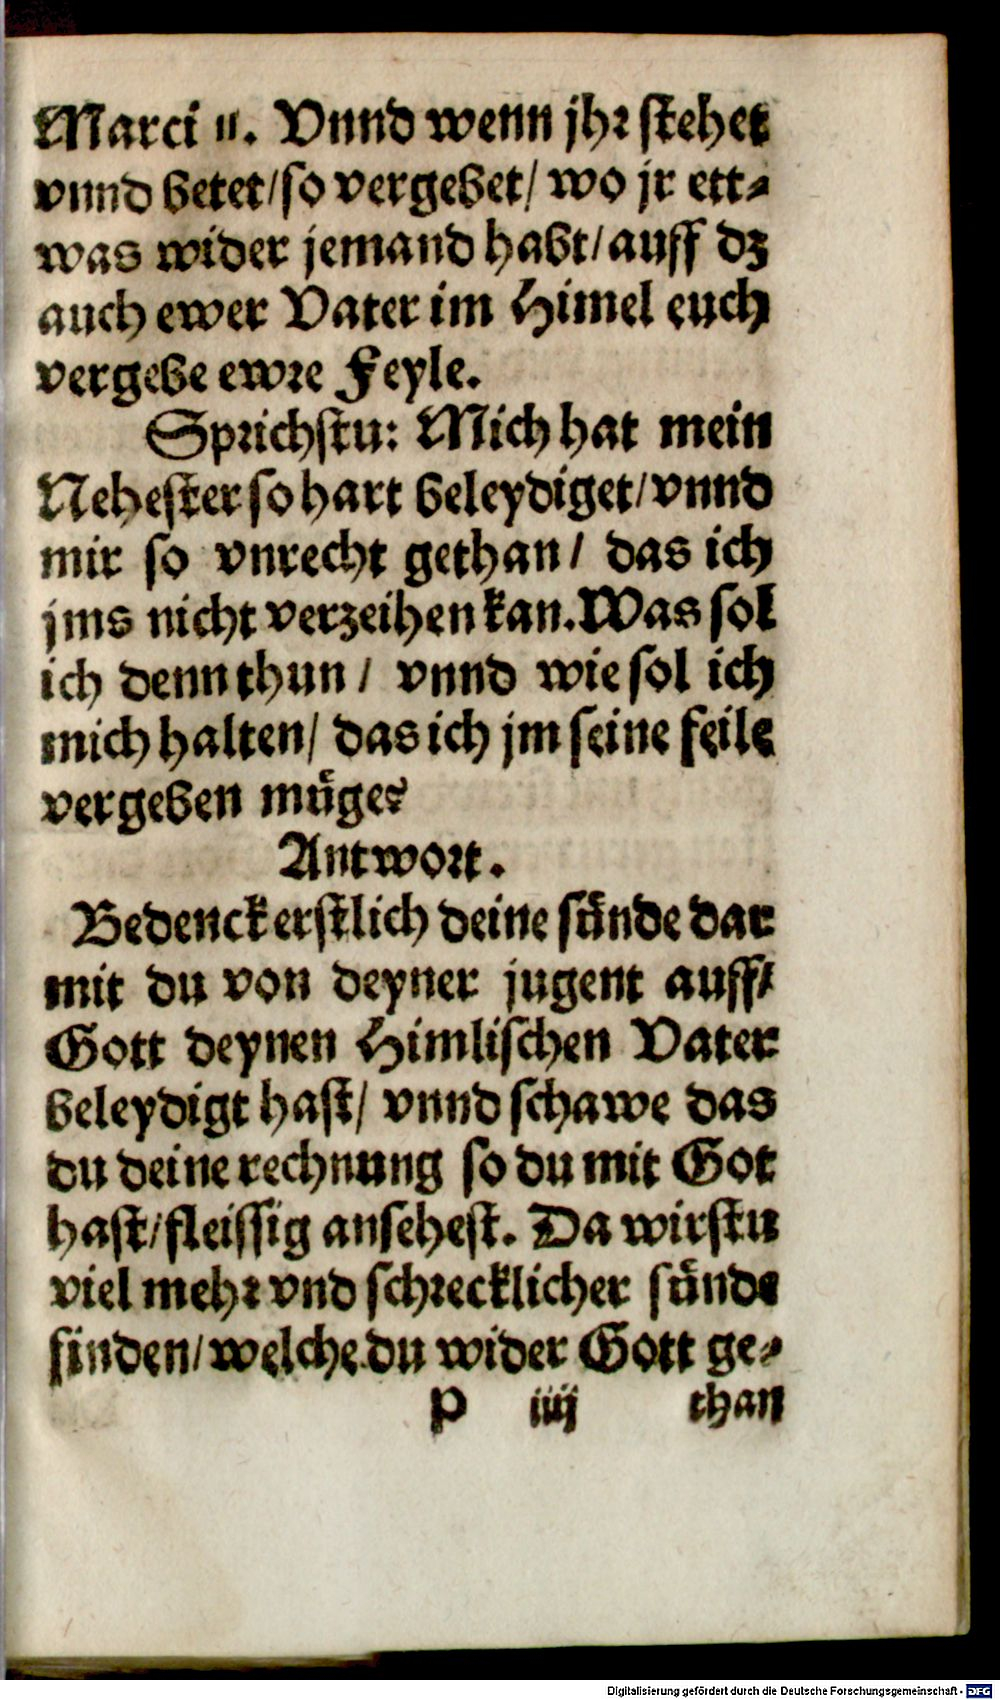 Marci 11. Vnnd wenn jhr stehet
vnnd betet/ so vergebet/ wo jr ett-
was wider jemand habt/ auff dz
auch ewer Vater im Himel euch
vergebe ewre Feyle.
Sprichstu: Mich hat mein
Nehester so hart beleydiget/ vnnd
mir so vnrecht gethan/ das ich
jms nicht verzeihen kan. Was sol
ich denn thun/ vnnd wie sol ich
mich halten/ das ich jm seine feile
vergeben müge?
Antwort.
Bedenck erstlich deine sünde dar
mit du von deyner jugent auff/
Gott deynen Himlischen Vater
beleydigt hast/ vnnd schawe das
du deine rechnung so du mit Got
hast/ fleissig ansehest. Da wirstu
viel mehr vnd schrecklicher sünde
finden/ welche du wider Gott ge-
P iiij than
Digitalisierung gefördert durch die Deutsche Forschungsgemeinschaft - DFG